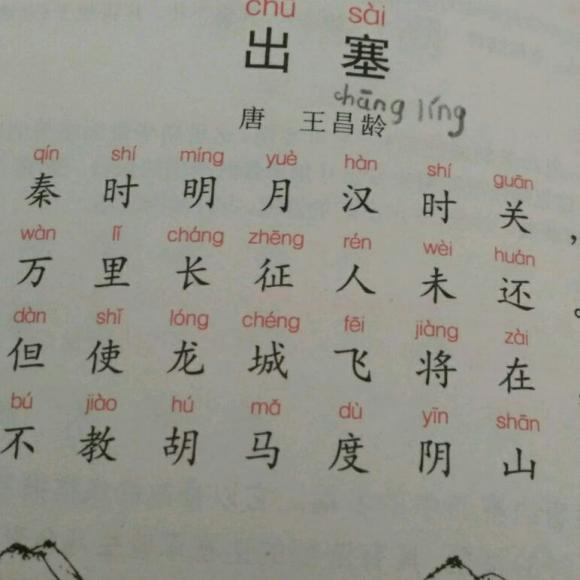 chū sài
出 塞
chāng líng
唐 王昌龄
qín shí míng yuè hàn shí guān
秦 时 明 月 汉 时 关，
wàn lǐ cháng zhēng rén wèi huán
万 里 长 征 人 未 还。
dàn shǐ lóng chéng fēi jiàng zài
但 使 龙 城 飞 将 在
bú jiào hú mǎ dù yīn shān
不 教 胡 马 度 阴 山